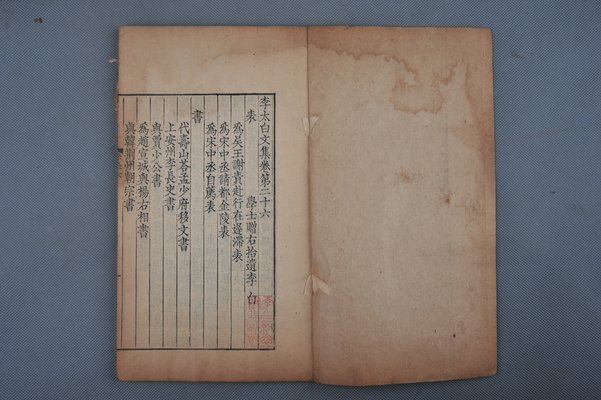 李太白文集卷第二十六
學士贈右拾遺李 白
表
為吳王謝責赴行在遲滯表
為宋中丞請都金陵表
為宋中丞自薦表
書
代壽山荅孟少府移文書
上安州李長史書
與賈少公書
為趙宣城與楊右相書
與韓荊州朝宗書